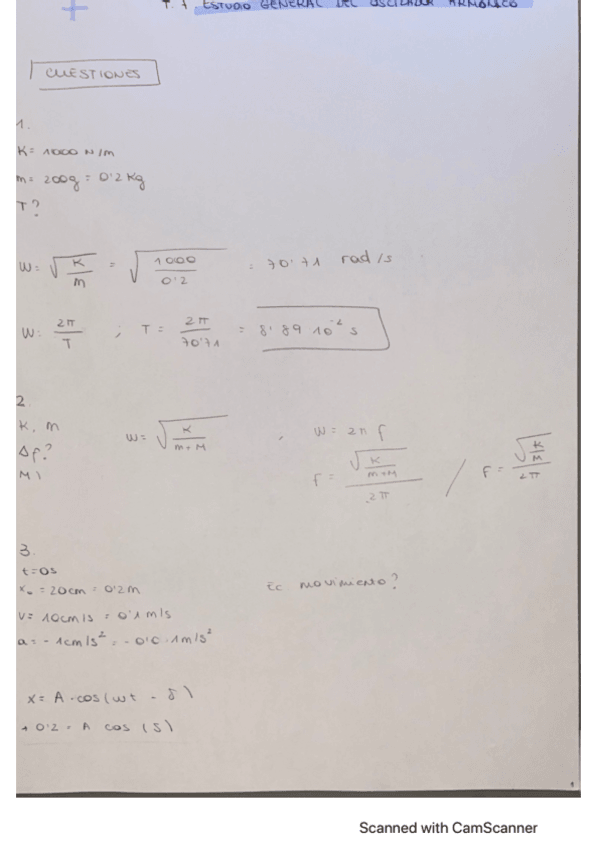 T.7 ESTUDIO GENERAL DEL OSCILADOR ARMÓNICO
CUESTIONES
1.
K = 1000 N/m
m = 200g = 0'2 Kg
T?
W = √(K/m) = √(1000/0'2) = 70'71 rad/s
W = 2π/T ; T = 2π/70'71 = 8'89 10⁻² s
2.
K, m
W = √(K/(m+M)) , W = 2π f
Δf?
M)
F = √(K/(m+M))/2π / F = √(K/M)/2π
3.
t=0s
x₀ = 20cm = 0'2m
Ec movimiento?
V = 10cm/s = 0'1 m/s
a = -1cm/s² = -0'0.1m/s²
x = A·cos(wt - δ)
+ 0'2 = A cos (δ)
1
Scanned with CamScanner